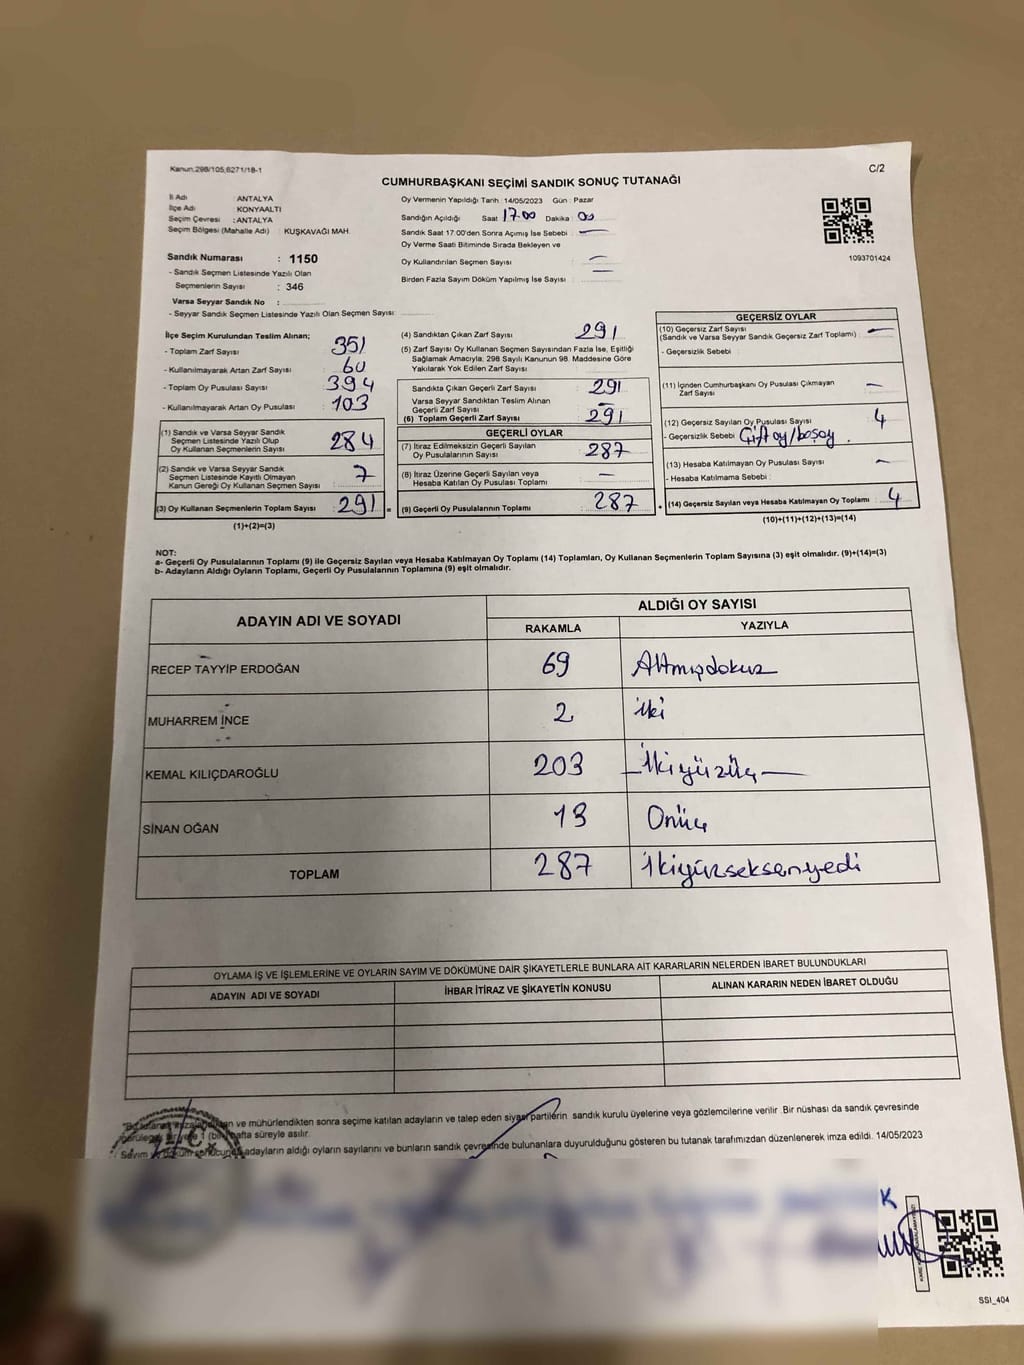 Kanun.298/105,6271/18-1
C/2
CUMHURBAŞKANI SEÇİMİ SANDIK SONUÇ TUTANAĞI
İl Adı ANTALYA
İlçe Adı : KONYAALTI
Seçim Çevresi : ANTALYA
Seçim Bölgesi (Mahalle Adı) : KUŞKAVAĞI MAH.
Sandık Numarası : 1150
- Sandık Seçmen Listesinde Yazılı Olan
Seçmenlerin Sayısı : 346
Varsa Seyyar Sandık No :
- Seyyar Sandık Seçmen Listesinde Yazılı Olan Seçmen Sayısı :
Oy Vermenin Yapıldığı Tarih : 14/05/2023 Gün : Pazar
Sandığın Açıldığı Saat 17.00 Dakika : 00
Sandık Saat 17:00'den Sonra Açımış İse Sebebi : —
Oy Verme Saati Bitiminde Sırada Bekleyen ve
Oy Kullandırılan Seçmen Sayısı : —
Birden Fazla Sayım Döküm Yapılmış İse Sayısı : —
1093701424
İlçe Seçim Kurulundan Teslim Alınan;
- Toplam Zarf Sayısı : 351
- Kullanılmayarak Artan Zarf Sayısı : 60
- Toplam Oy Pusulası Sayısı : 394
- Kullanılmayarak Artan Oy Pusulası : 103
(1) Sandık ve Varsa Seyyar Sandık
Seçmen Listesinde Yazılı Olup
Oy Kullanan Seçmenlerin Sayısı : 284
(2) Sandık ve Varsa Seyyar Sandık
Seçmen Listesinde Kayıtlı Olmayan
Kanun Gereği Oy Kullanan Seçmen Sayısı : 7
(3) Oy Kullanan Seçmenlerin Toplam Sayısı : 291 =
(1)+(2)=(3)
(4) Sandıktan Çıkan Zarf Sayısı : 291
(5) Zarf Sayısı Oy Kullanan Seçmen Sayısından Fazla İse, Eşitliği
Sağlamak Amacıyla, 298 Sayılı Kanunun 98. Maddesine Göre
Yakılarak Yok Edilen Zarf Sayısı :
Sandıkta Çıkan Geçerli Zarf Sayısı : 291
Varsa Seyyar Sandıktan Teslim Alınan
Geçerli Zarf Sayısı : —
(6) Toplam Geçerli Zarf Sayısı : 291
GEÇERLİ OYLAR
(7) İtiraz Edilmeksizin Geçerli Sayılan
Oy Pusulalarının Sayısı : 287
(8) İtiraz Üzerine Geçerli Sayılan veya
Hesaba Katılan Oy Pusulası Toplamı : —
(9) Geçerli Oy Pusulalarının Toplamı : 287 +
GEÇERSİZ OYLAR
(10) Geçersiz Zarf Sayısı : —
(Sandık ve Varsa Seyyar Sandık Geçersiz Zarf Toplamı)
- Geçersizlik Sebebi :
(11) İçinden Cumhurbaşkanı Oy Pusulası Çıkmayan
Zarf Sayısı : —
(12) Geçersiz Sayılan Oy Pusulası Sayısı : 4
- Geçersizlik Sebebi : Çift oy/boşoy .
(13) Hesaba Katılmayan Oy Pusulası Sayısı : —
- Hesaba Katılmama Sebebi :
(14) Geçersiz Sayılan veya Hesaba Katılmayan Oy Toplamı : 4
(10)+(11)+(12)+(13)=(14)
NOT:
a- Geçerli Oy Pusulalarının Toplamı (9) ile Geçersiz Sayılan veya Hesaba Katılmayan Oy Toplamı (14) Toplamları, Oy Kullanan Seçmenlerin Toplam Sayısına (3) eşit olmalıdır. (9)+(14)=(3)
b- Adayların Aldığı Oyların Toplamı, Geçerli Oy Pusulalarının Toplamına (9) eşit olmalıdır.
ADAYIN ADI VE SOYADI
ALDIĞI OY SAYISI
RAKAMLA YAZIYLA
RECEP TAYYİP ERDOĞAN 69 Altmışdokuz
MUHARREM İNCE 2 iki
KEMAL KILIÇDAROĞLU 203 İkiyüzüç
SİNAN OĞAN 13 Onüç
TOPLAM 287 ikiyüzseksenyedi
OYLAMA İŞ VE İŞLEMLERİNE VE OYLARIN SAYIM VE DÖKÜMÜNE DAİR ŞİKAYETLERLE BUNLARA AİT KARARLARIN NELERDEN İBARET BULUNDUKLARI
ADAYIN ADI VE SOYADI İHBAR İTİRAZ VE ŞİKAYETİN KONUSU ALINAN KARARIN NEDEN İBARET OLDUĞU
ve mühürlendikten sonra seçime katılan adayların ve talep eden siyasi partilerin sandık kurulu üyelerine veya gözlemcilerine verilir .Bir nüshası da sandık çevresinde
1 (bir) hafta süreyle asılır.
Sayım adayların aldığı oyların sayılarını ve bunların sandık çevresinde bulunanlara duyurulduğunu gösteren bu tutanak tarafımızdan düzenlenerek imza edildi. 14/05/2023
SSI_404